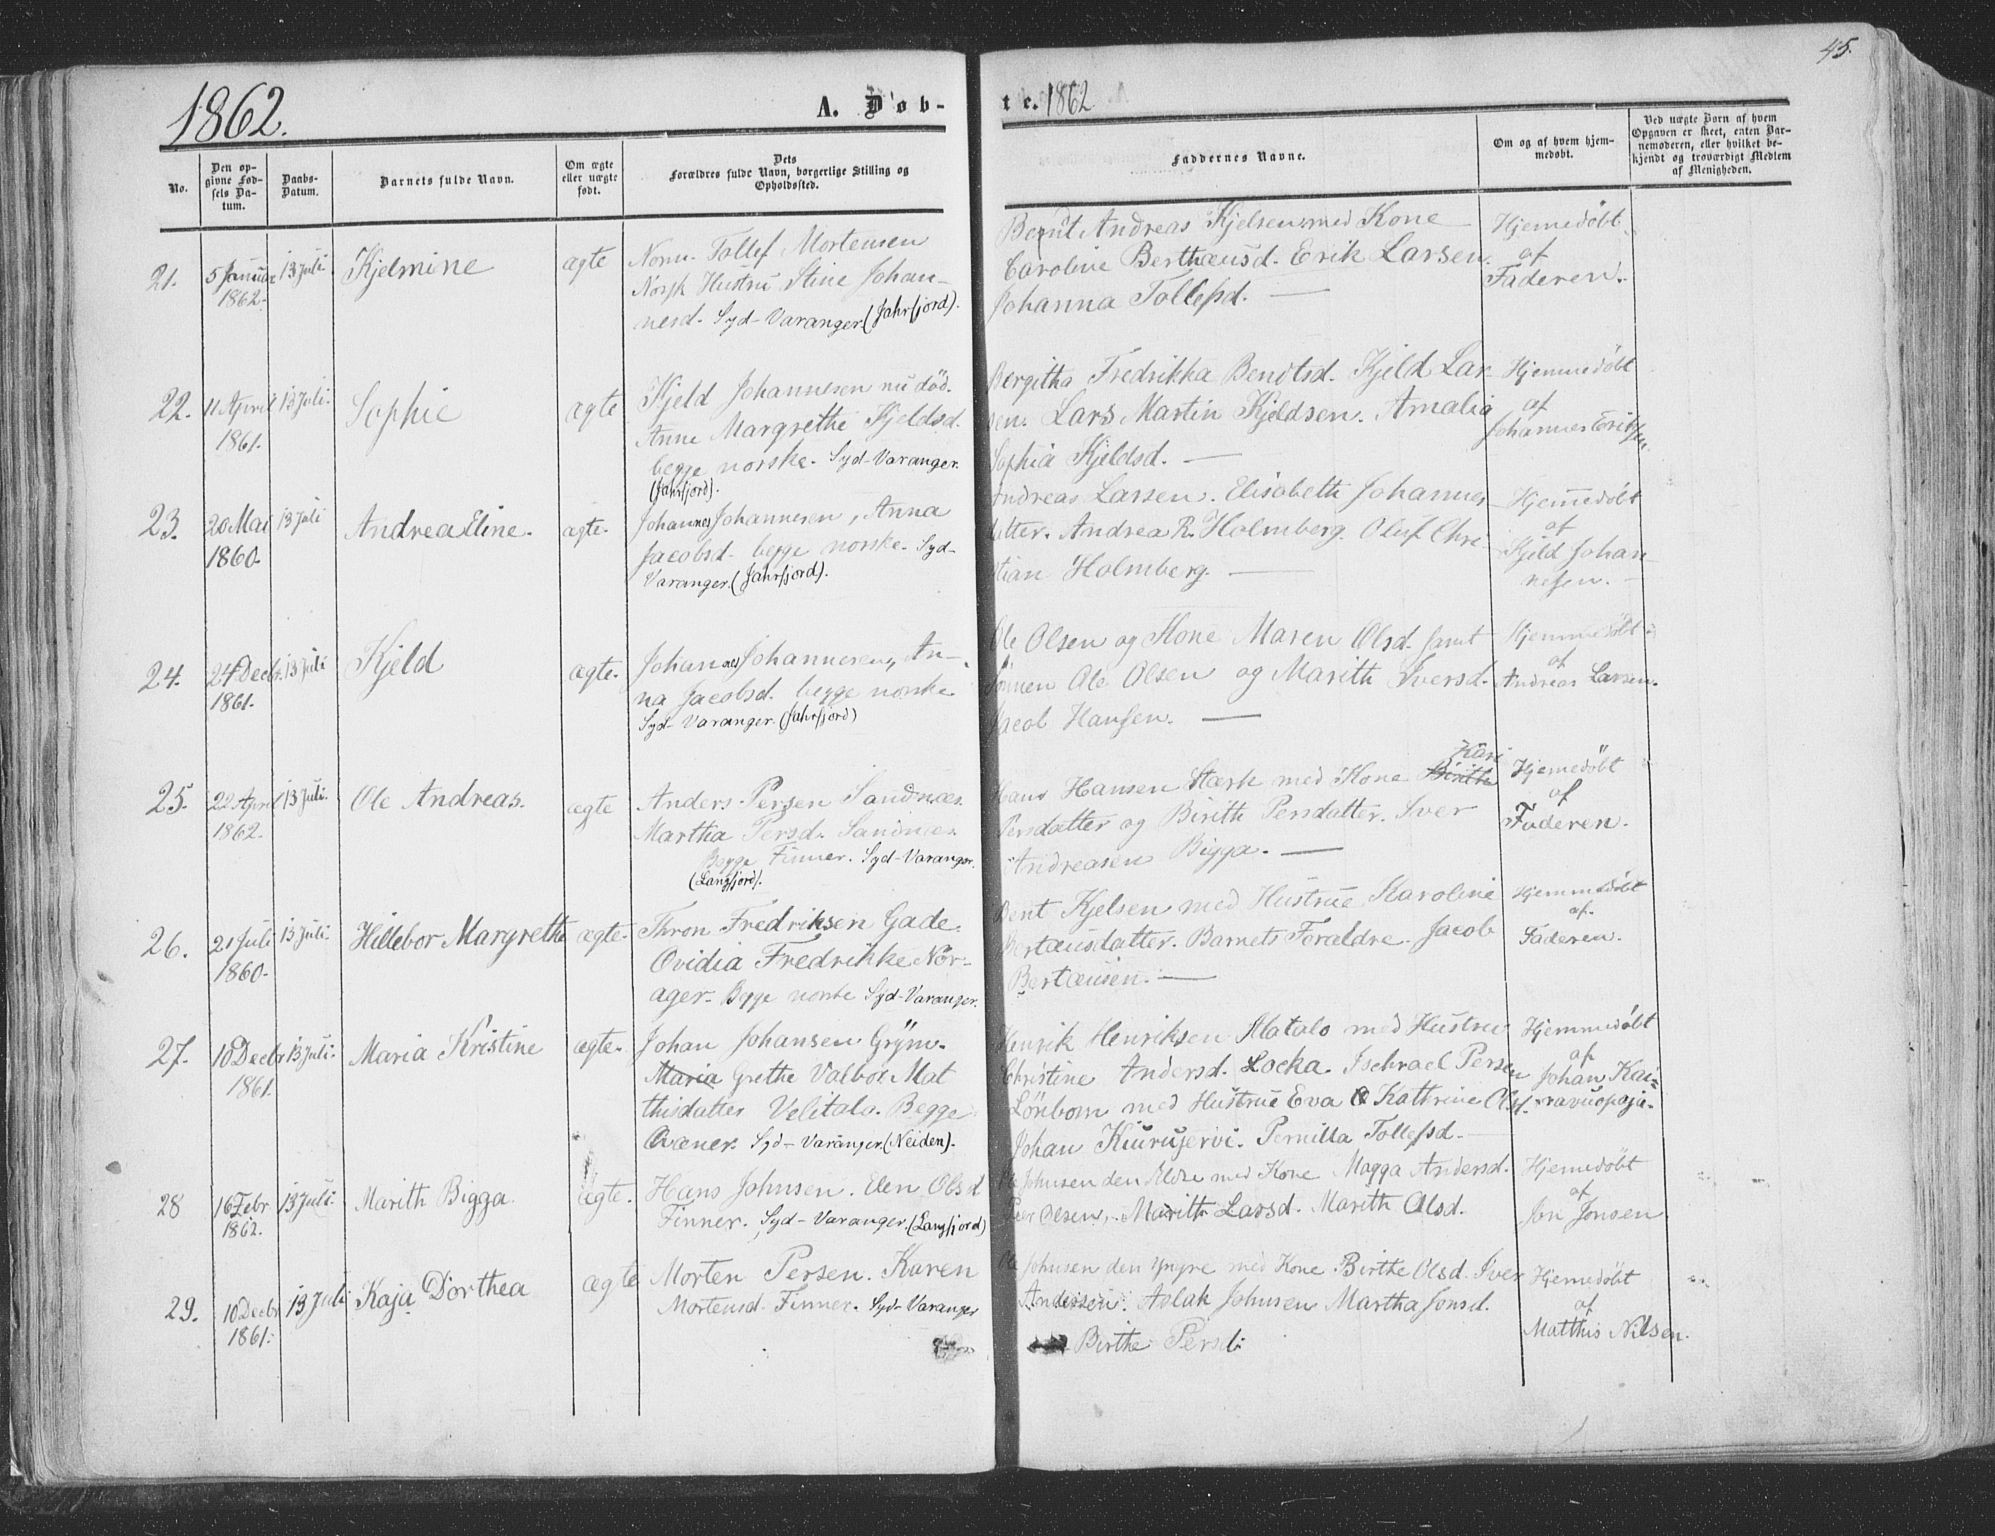 45.
1862.
A. Døb-
te. 1862
No.
Den op-
givne Fød-
sels Da-
tum.
Daabs-
Datum.
Barnets fulde Navn.
Om ægte
eller uægte
født.
Dets
Forældres fulde Navn, borgerlige Stilling og
Opholdssted.
Faddernes Navne.
Om og af hvem hjem-
medøbt.
Ved uægte Børn af hvem
Opgaven er skeet, enten Bar-
nemoderen, eller hvilket be-
kjendt og troværdigt Medlem
af Menigheden.
21.
5 Januar
1862.
13 Juli
Kjelmine
ægte
Norm. Tollef Mortensen
Norsk Hustru Stine Johan-
nesd. Syd-Varanger (Jahrfjord).
Bernt Andreas Kjelsen med Kone
Caroline Berthæusd. Erik Larsen.
Johanna Tollefsd. —
Hjemedøbt
af
Faderen.
22.
11 April
1861.
13 Juli.
Sophie
ægte
Kjeld Johannesen nu död.
Anne Margrethe Kjeldsd.
begge norske. Syd-Varanger.
(Jahrfjord).
Bergitha Fredrikka Bendtsd. Kjeld Lar-
sen. Lars Martin Kjeldsen. Amalia
Sophia Kjeldsd. —
Hjemmedöbt
af
Johannes Eriksen
23.
20 Mai
1860.
13 Juli
Andrea Eline.
ægte.
Johannes Johannesen, Anna
Jacobsd. begge norske. Syd-
Varanger. (Jahrfjord).
Andreas Larsen. Elisabeth Johannes-
datter. Andrea R. Holmberg. Oluf Chri-
stian Holmberg. —
Hjemedöbt
af
Kjeld Johan-
nesen. —
24.
24 Decbr.
1861.
13 Juli
Kjeld
ægte.
Johannes Johannesen, An-
na Jacobsd. begge norske
Syd-Varanger. (Jahrfjord)
Ole Olsen og Kone Maren Olsd. samt
Sönnen Ole Olsen og Marith Iversd.
Jacob Hansen. —
Hjemmedöbt
af
Andreas Larsen.
25.
22 April
1862.
13 Juli.
Ole Andreas.
ægte
Anders Persen Sandnæs.
Martha Persd. Sandnæs.
Begge Finner. Syd-Varanger.
(Langfjord).
Kari
Hans Hansen Stærk med Kone Birith
Persdatter og Birith Persdatter. Iver
Andreasen Bigga. —
Hjemedöbt
af
Faderen.
26.
21 Juli
1860.
13 Juli.
Hillebor Margrethe
ægte.
Thron Fredriksen Gade.
Ovidia Fredrikke Nor-
ager. Begge norske Syd-Varanger.
Bent Kjelsen med Hustrue Karoline
Bertæusdatter. Barnets Forældre. Jacob
Bertæusen. —
Hjemmedöbt
af.
Faderen.
27.
10 Decbr
1861.
13 Juli.
Maria Kristine
ægte.
Johan Johansen Grym.
Maria Grethe Valbor Mat
thisdatter Velitalo. Begge
Qvæner. Syd-Varanger. (Neiden).
Henrik Henriksen Alatalo med Hustru
Christine Andersd. Locka. Ischrael Persen
Lönbom med Hustrue Eva Kathrine Olsd.
Johan Kiurujervi. Pernilla Tollefsd. —
Hjemmedöbt
af
Johan Kai-
ravuopaja.
28
16 Febr
1862.
13 Juli.
Marith Bigga.
ægte.
Hans Johnsen. Elen Olsd
Finner. Syd-Varanger. (Langfjord)
Ole Johnsen den Ældre med Kone Magga Andersd.
Peer Olsen, Marith Larsd. Marith Olsd.
Hjemedöbt
af
Jon Jonsen
29.
10 Decbr
1861.
13 Juli
Kaja Dorthea
ægte
Morten Persen. Karen
Mortensd. Finner. Syd-Varanger
Ole Johnsen den Yngre med Kone Birthe Olsd. Iver
Andersen. Aslak Johnsen Martha Jonsd.
Birthe Persd.
Hjemedöbt
af
Matthis Nilsen.